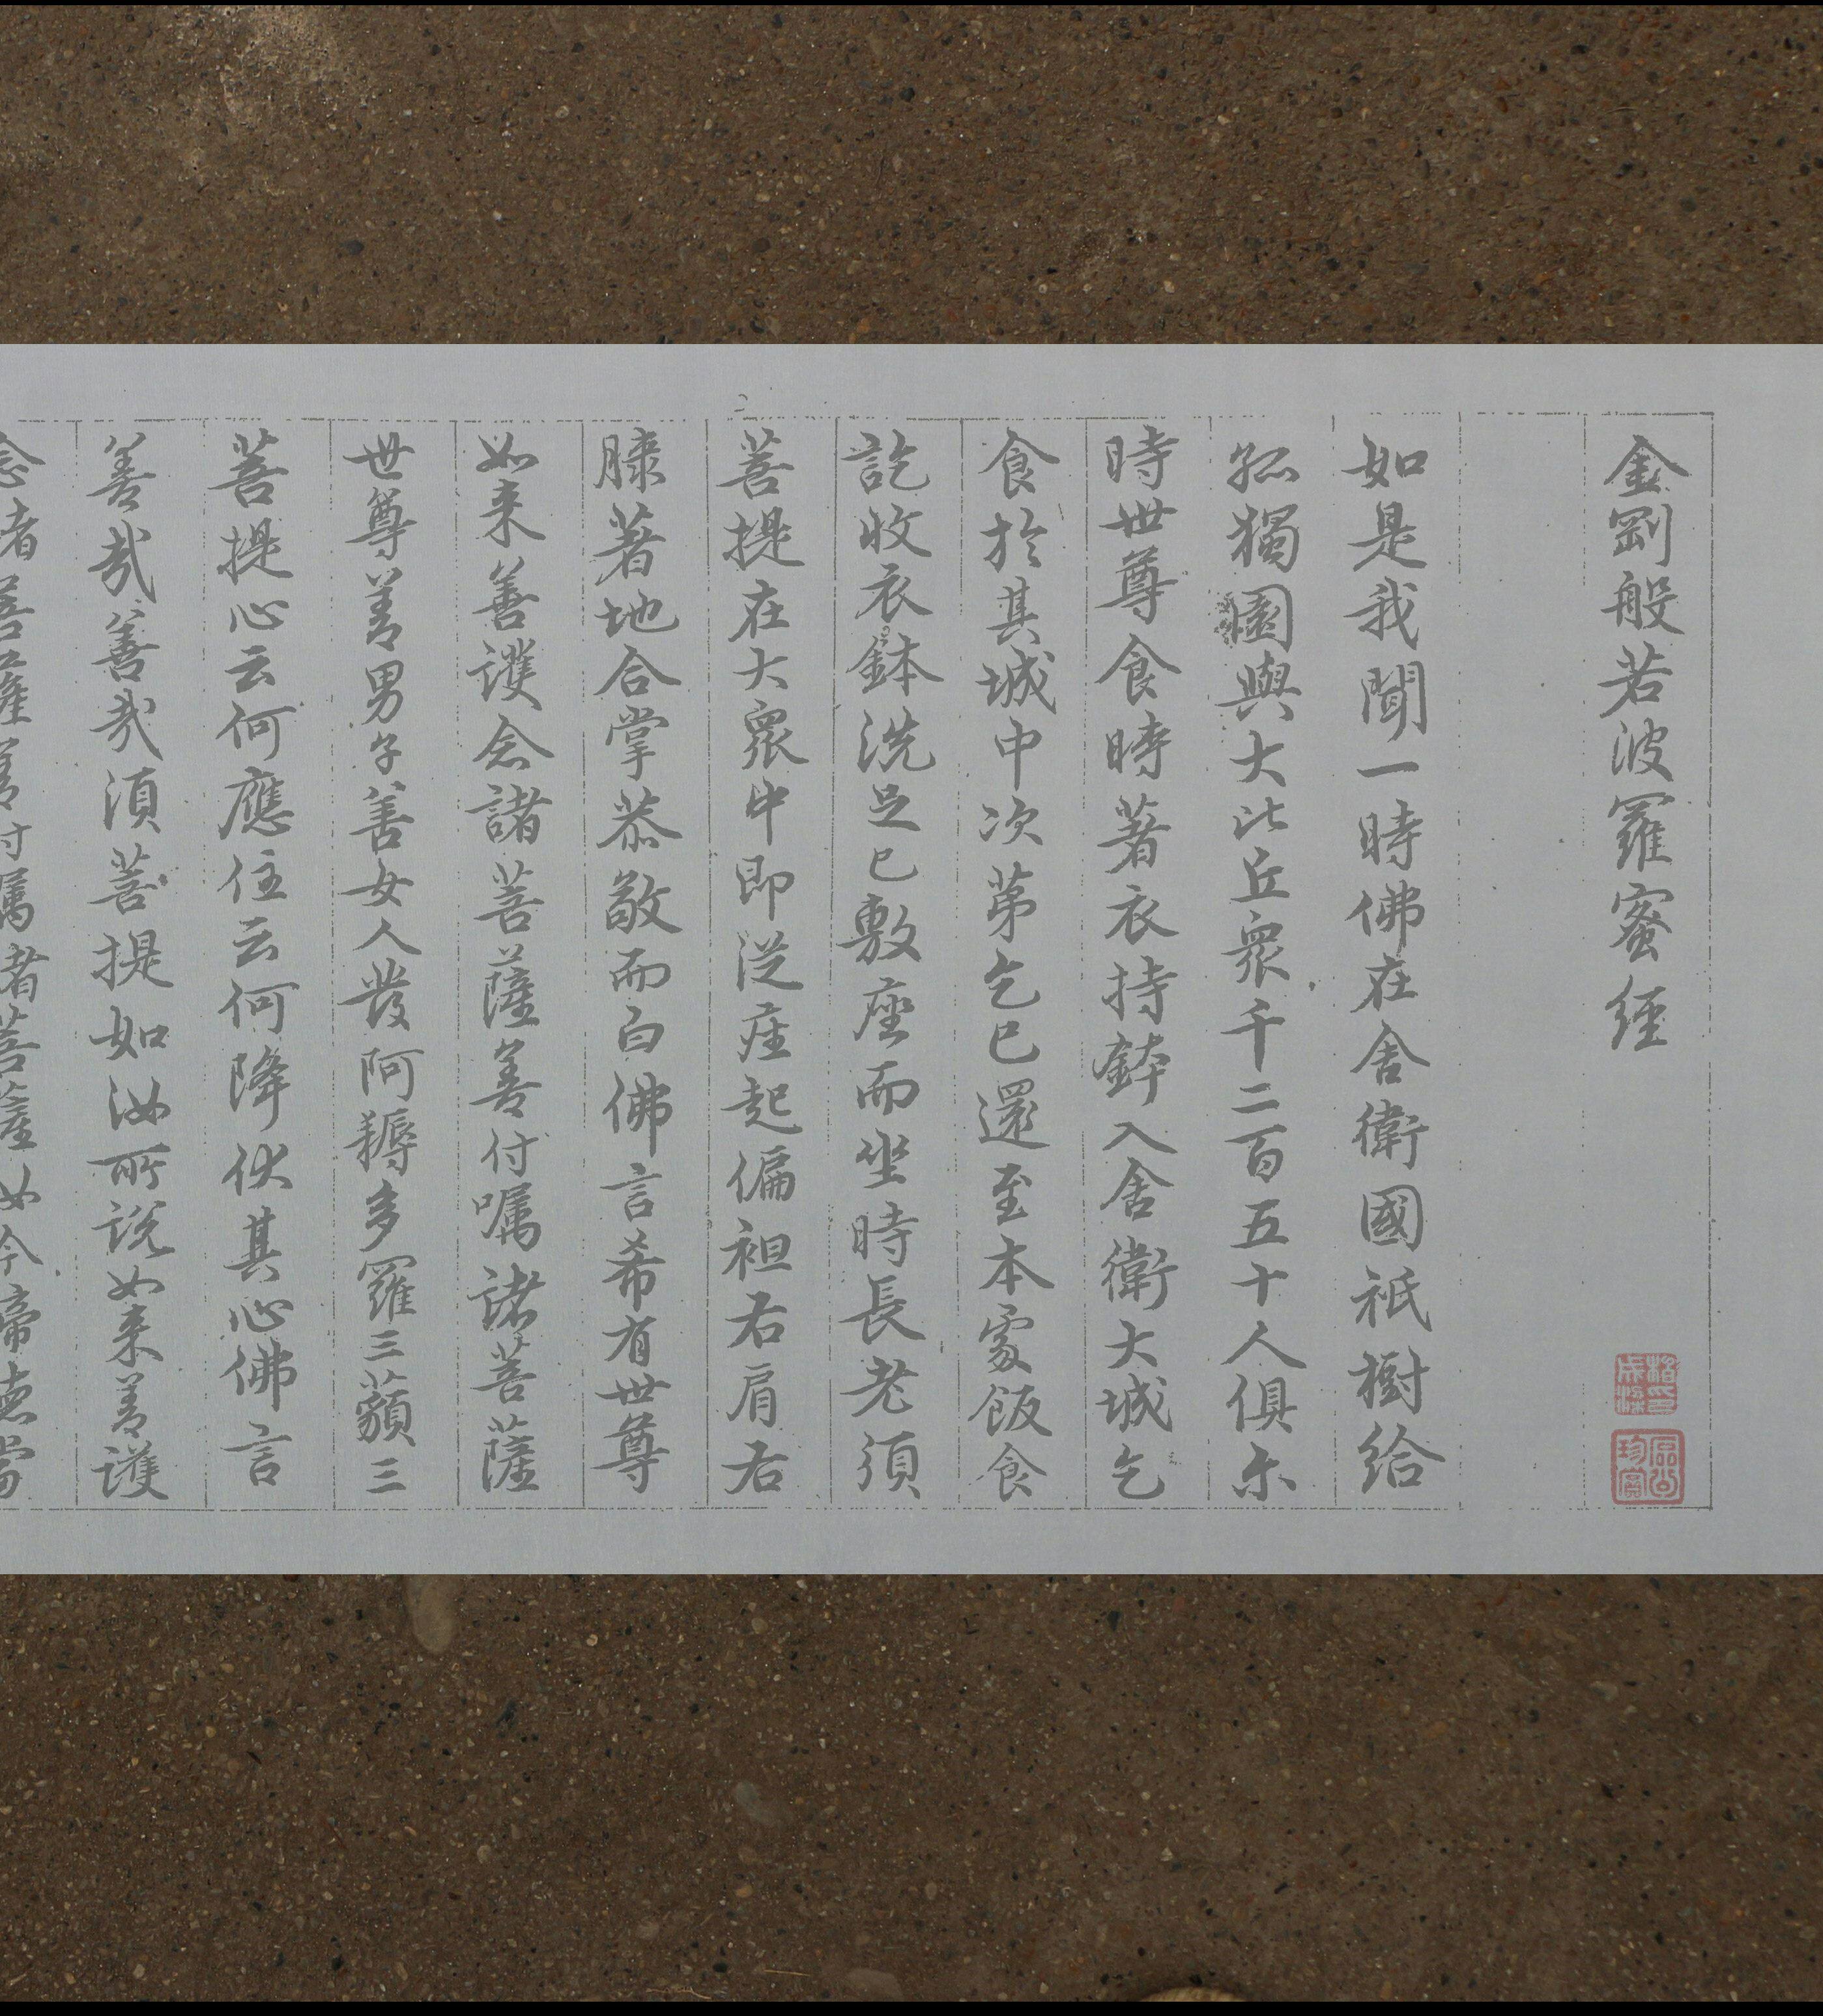 金剛般若波羅蜜經
如是我聞一時佛在舍衛國祇樹給
孤獨園與大比丘衆千二百五十人俱尒
時世尊食時著衣持鉢入舍衛大城乞
食於其城中次第乞已還至本處飯食
訖收衣鉢洗足已敷座而坐時長老須
菩提在大衆中即從座起偏袒右肩右
膝著地合掌恭敬而白佛言希有世尊
如来善護念諸菩薩善付嘱諸菩薩
世尊善男子善女人發阿耨多羅三藐三
菩提心云何應住云何降伏其心佛言
善哉善哉須菩提如汝所說如来善護
念諸菩薩善付嘱諸菩薩汝今諦聽當